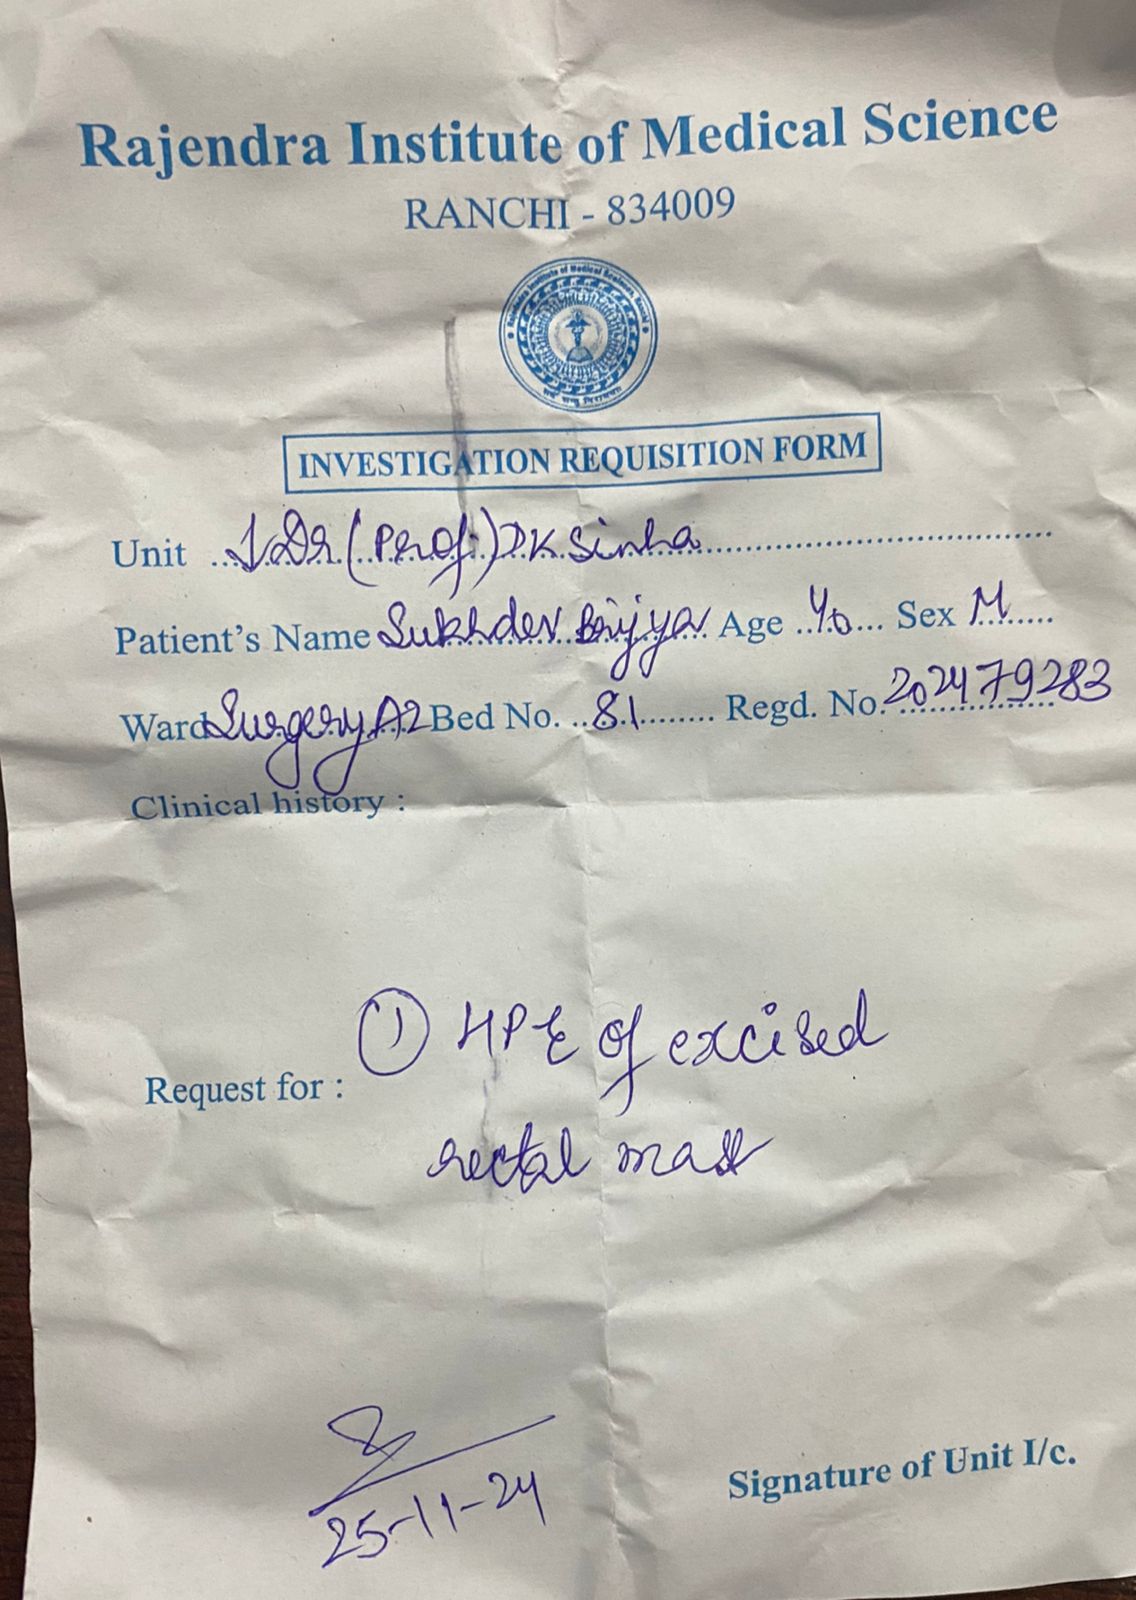 Rajendra Institute of Medical Science
RANCHI - 834009
INVESTIGATION REQUISITION FORM
Unit Dr (Prof.) DK Sinha
Patient's Name Sukhdev Birjya Age 40 Sex M
Ward Surgery A2 Bed No. 81 Regd. No. 202479283
Clinical history :
① HPE of excised
Request for :
rectal mass
25-11-24
Signature of Unit I/c.